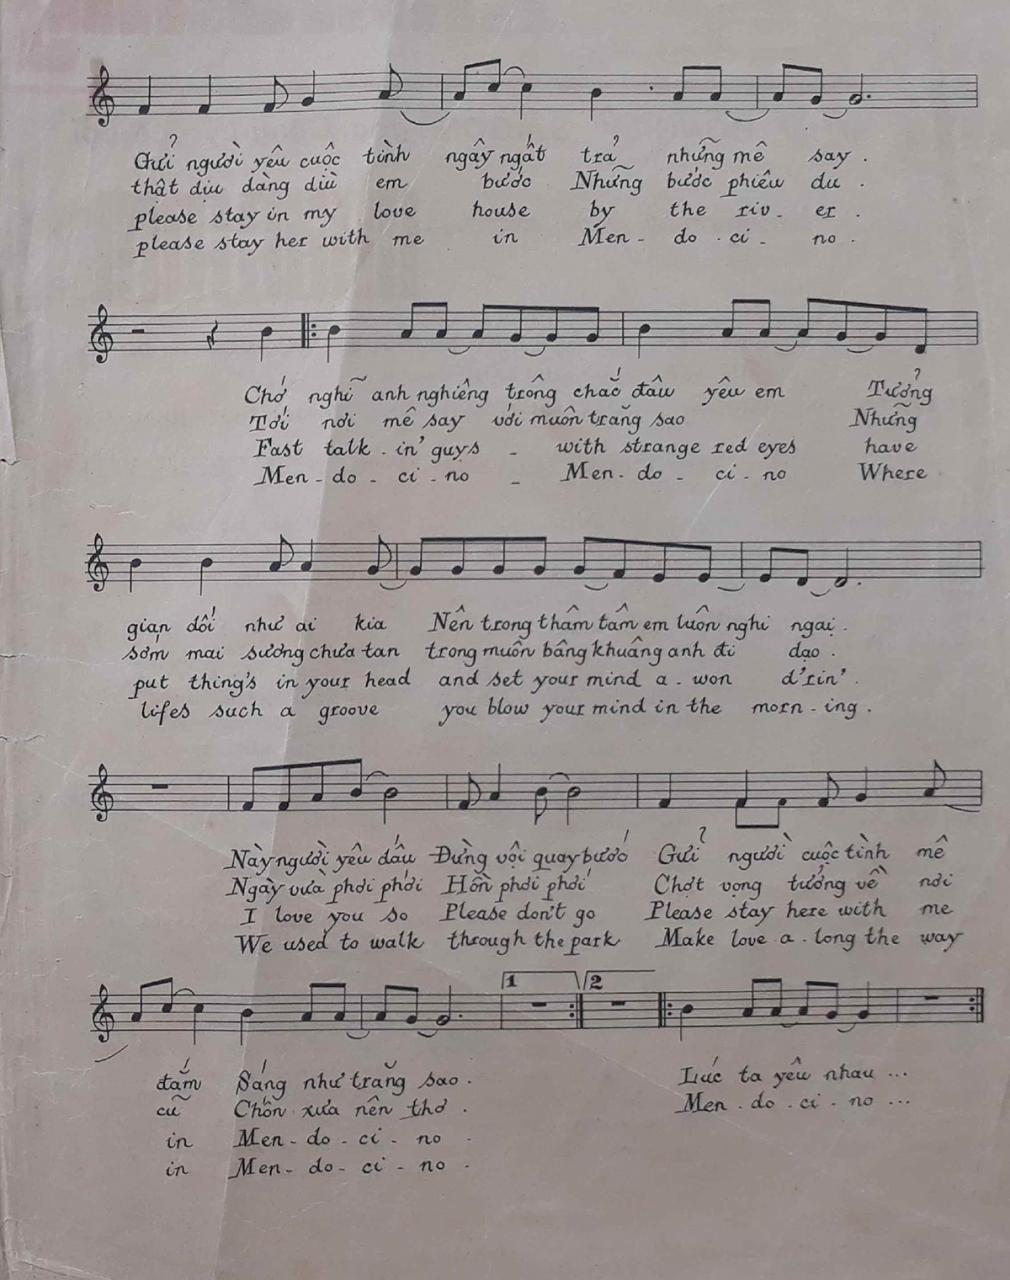 Gửi người yêu cuộc tình ngây ngất trả những mê say .
thật dịu dàng dìu em bước Những bước phiêu du .
please stay in my love house by the riv - er .
please stay her with me in Men - do - ci - no .
Chớ nghĩ anh nghiêng trông chao đâu yêu em Tưởng
Tới nơi mê say với muôn trăng sao Những
Fast talk - in' guys - with strange red eyes have
Men - do - ci - no - Men - do - ci - no Where
gian dối như ai kia Nên trong thâm tâm em luôn nghi ngại .
sớm mai sương chưa tan trong muôn bâng khuâng anh đi dạo .
put thing's in your head and set your mind a - won d'rin' .
lifes such a groove you blow your mind in the morn - ing .
Này người yêu dấu Đừng vội quay bước Gửi người cuộc tình mê
Ngày vừa phơi phới Hồn phơi phới Chợt vọng tưởng về nơi
I love you so Please don't go Please stay here with me
We used to walk through the park Make love a - long the way
1 2
đắm Sáng như trăng sao . Lúc ta yêu nhau ...
cũ Chốn xưa nên thơ . Men - do - ci - no ...
in Men - do - ci - no -
in Men - do - ci - no .